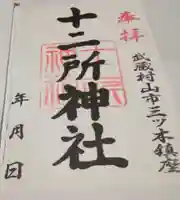 奉拝
武蔵村山市三ツ木鎮座
十二所神社
年月日